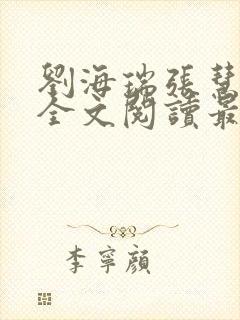 劉海瑞張慧
全文閱讀最
李寧顏